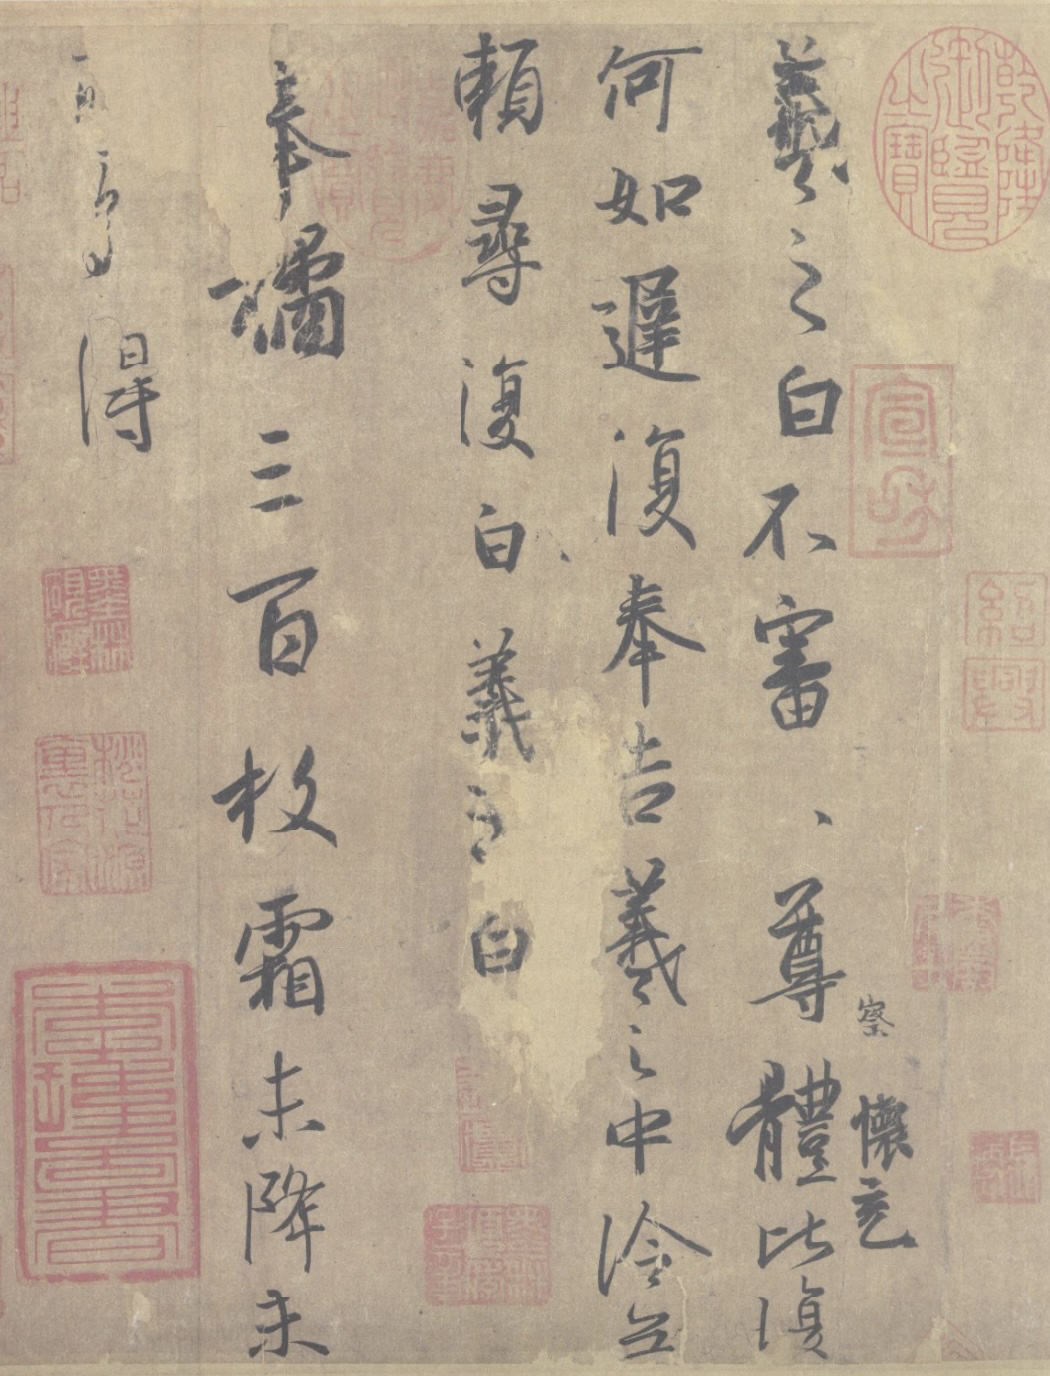 乾隆御覽之寶
宣和
紹興
察
懷充
羲之白不審、尊體比復
何如遲復奉告羲之中冷無
賴尋復白羲之白
奉橘三百枚霜未降未
可多得